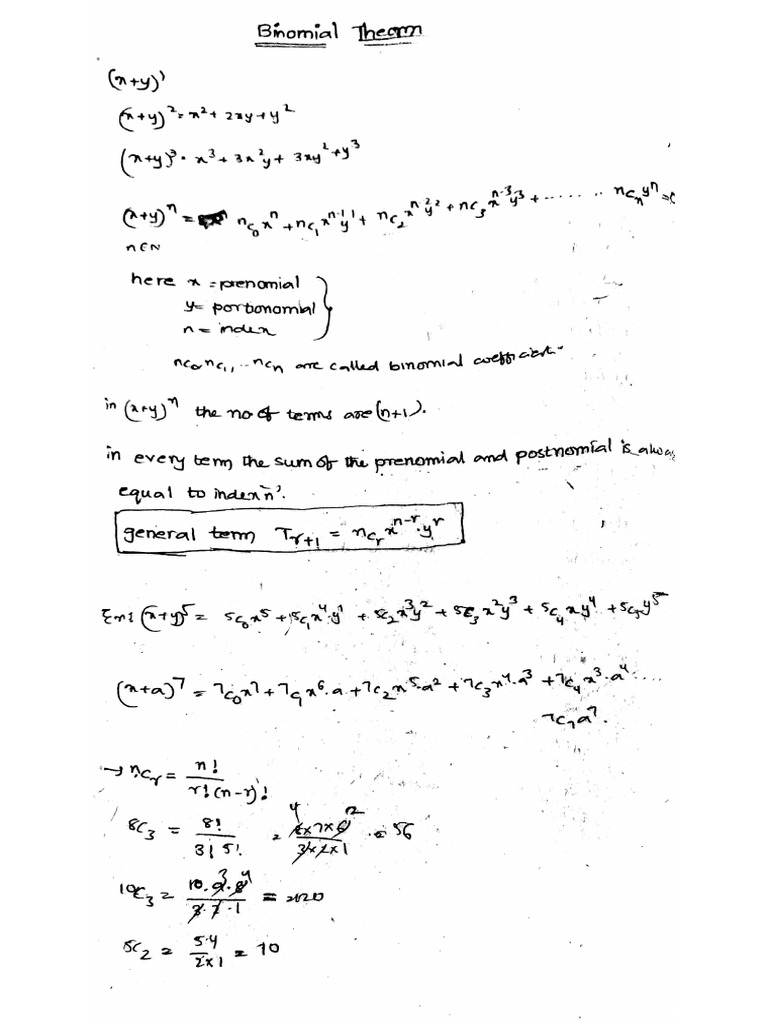 Binomial Theorm
(x+y)¹
(x+y)² = x² + 2xy + y²
(x+y)³ = x³ + 3x²y + 3xy² + y³
(x+y)ⁿ = nC₀xⁿ + nC₁xⁿ⁻¹y¹ + nC₂xⁿ⁻²y² + nC₃xⁿ⁻³y³ + ...... nCₙyⁿ =
n∈N
here x = prenomial
y = portionomial
n = index
nC₀, nC₁, ... nCₙ are called binomial coefficient
in (x+y)ⁿ the no of terms are (n+1).
in every term the sum of the prenomial and postnomial is alwa
equal to index 'n'.
general term Tᵣ₊₁ = nCᵣxⁿ⁻ʳ.yʳ
(x+y)⁵ = 5C₀x⁵ + 5C₁x⁴y¹ + 5C₂x³y² + 5C₃x²y³ + 5C₄xy⁴ + 5C₅y⁵
(x+a)⁷ = 7C₀x⁷ + 7C₁x⁶.a + 7C₂x⁵.a² + 7C₃x⁴.a³ + 7C₄x³.a⁴ ....
7C₇a⁷.
→ nCᵣ = n! / r!(n-r)!
8C₃ = 8! / 3! 5! = 8×7×6 / 3×2×1 = 56
10C₃ = 10.9.8 / 3.2.1 = 120
5C₂ = 5.4 / 2×1 = 10